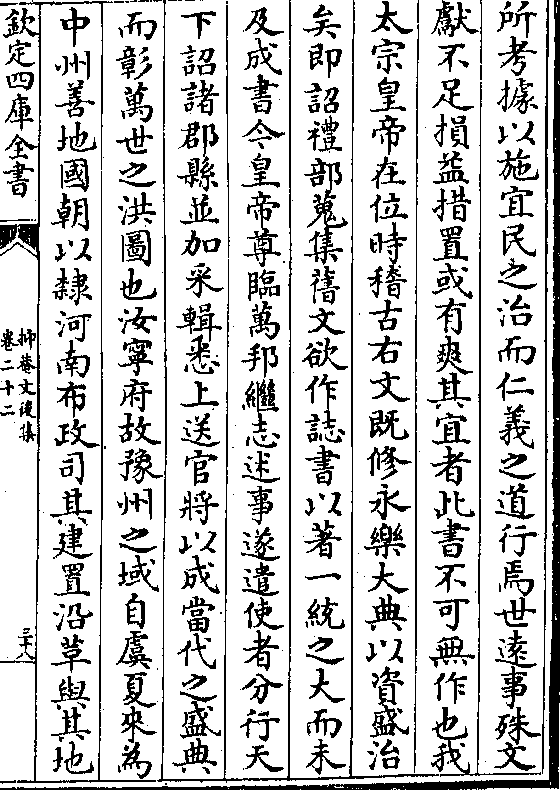 所考據以施宜民之治而仁義之道行焉世遠事殊文
獻不足損益措置或有爽其宜者此書不可無作也我
太宗皇帝在位時稽古右文既修永樂大典以資盛治
矣即詔禮部蒐集舊文欲作誌書以著一統之大而未
及成書今皇帝尊臨萬邦繼志述事遂遣使者分行天
下詔諸郡縣並加采輯悉上送官將以成當代之盛典
而彰萬世之洪圖也汝寧府故豫州之域自虞夏來為
中州善地國朝以隸河南布政司其建置沿革與其地
欽定四庫全書
抑菴文後集
卷二十二
三十八